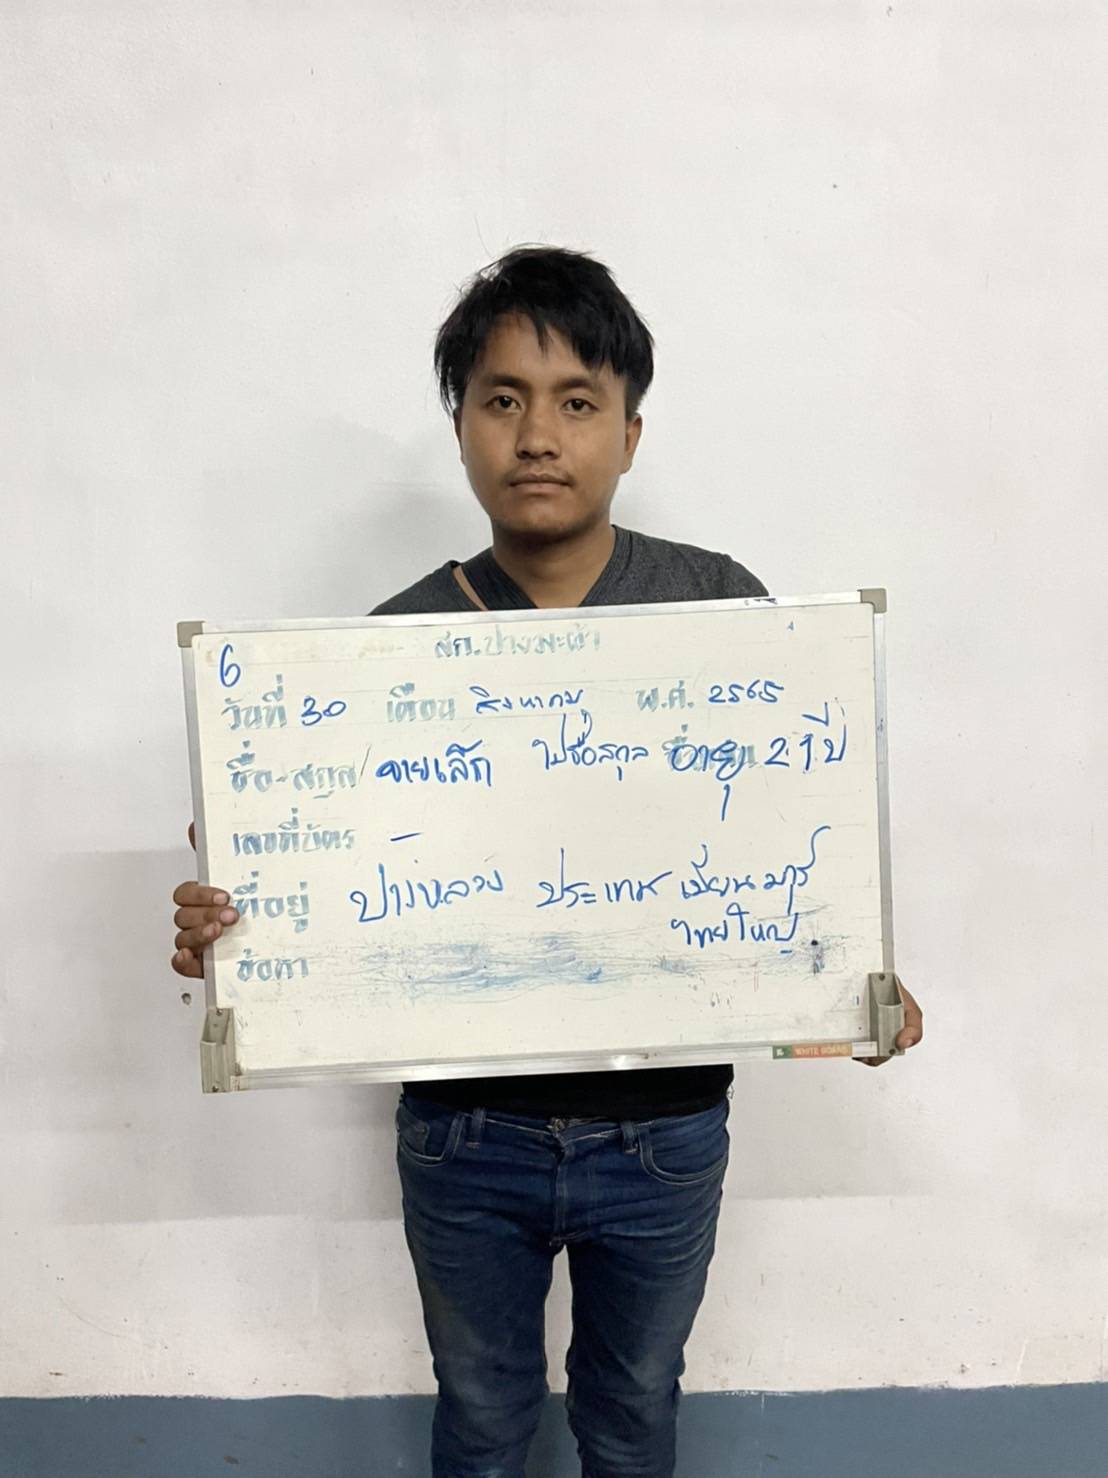 สภ.ปางมะผ้า
6
วันที่ 30 เดือน สิงหาคม พ.ศ. 2565
ชื่อ-สกุล จายเล็ก ไม่มีชื่อสกุล อายุ 21 ปี
เลขที่บัตร
ที่อยู่ ปางหลวง ประเทศ เมียนมาร์
ไทยใหญ่
ข้อหา
WHITE BOARD